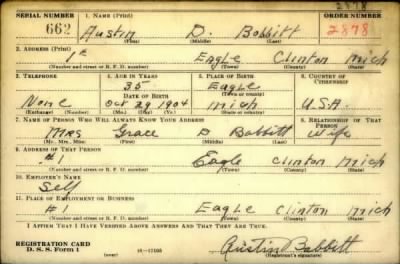 2878
SERIAL NUMBER 1. NAME (Print) ORDER NUMBER
662 Austin D. Bobbitt 2878
(First) (Middle) (Last)
2. ADDRESS (Print)
Eagle Clinton Mich
(Number and street or R. F. D. number) (Town) (County) (State)
3. TELEPHONE 4. AGE IN YEARS 5. PLACE OF BIRTH 6. COUNTRY OF CITIZENSHIP
35 Eagle
DATE OF BIRTH (Town or county)
None Oct 29 1904 Mich U.S.A.
(Exchange) (Number) (Mo.) (Day) (Yr.) (State or country)
7. NAME OF PERSON WHO WILL ALWAYS KNOW YOUR ADDRESS 8. RELATIONSHIP OF THAT PERSON
Mrs Grace D Babbitt Wife
(Mr., Mrs., Miss) (First) (Middle) (Last)
9. ADDRESS OF THAT PERSON
#1 Eagle Clinton Mich
(Number and street or R. F. D. number) (Town) (County) (State)
10. EMPLOYER'S NAME
Self
11. PLACE OF EMPLOYMENT OR BUSINESS
#1 Eagle Clinton Mich
(Number and street or R. F. D. number) (Town) (County) (State)
I AFFIRM THAT I HAVE VERIFIED ABOVE ANSWERS AND THAT THEY ARE TRUE.
REGISTRATION CARD
D. S. S. Form 1 (over) 16—17105 Austin Babbitt
(Registrant's signature)